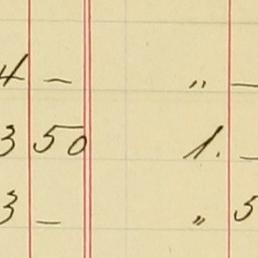 4 — " —
3 50 1. —
3 — " 5